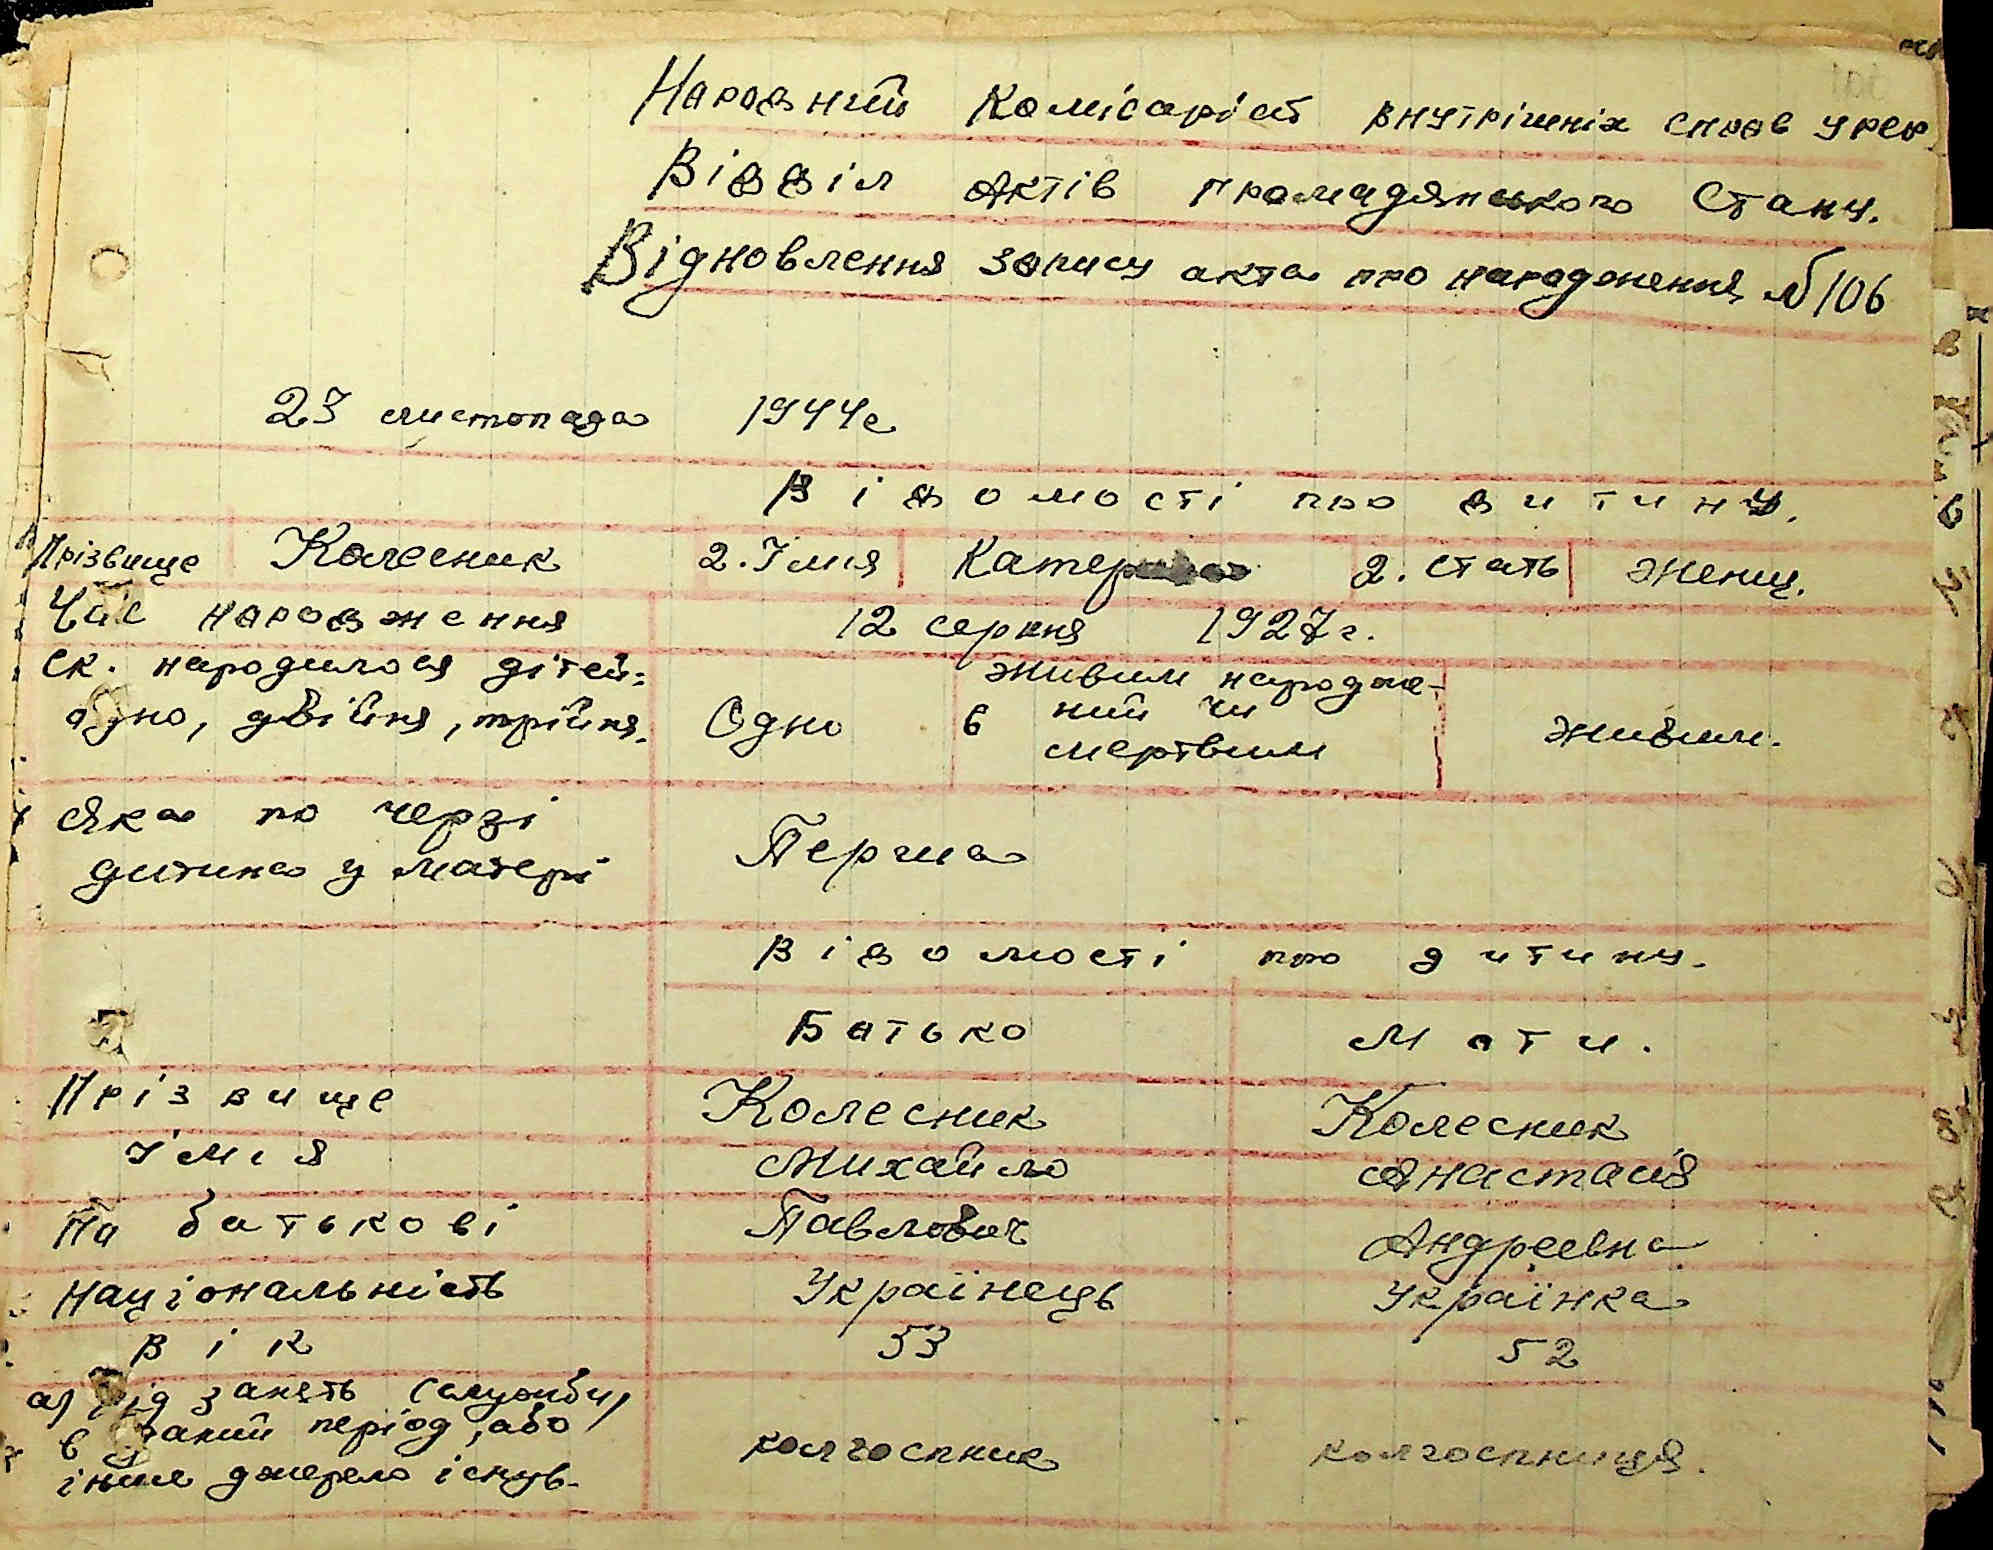 Народний Комісаріат внутрішніх справ УРСР.
Відділ Актів громадянського Стану.
Відновлення запису акта про народження № 106
23 листопада 1944 г
Відомості про дитину.
Прізвище Колесник 2. Імия Катерина 2. стать женщ.
Час народження 12 серпня 1927 г.
Ск. народилося дітей: одно, двійня, трійня. Одно в живим народже- ний чи мертвим живим.
Яка по черзі
дитина у матері Перша
Відомості про дитину.
Батько Мати.
Прізвище Колесник Колесник
Імия Михайло Анастасія
По батькові Павлович Андреевна
Національність Українець Українка
Вік 53 52
а) рід занять (служби)
в даний період, або
інше джерело існув. колгоспник колгоспниця.